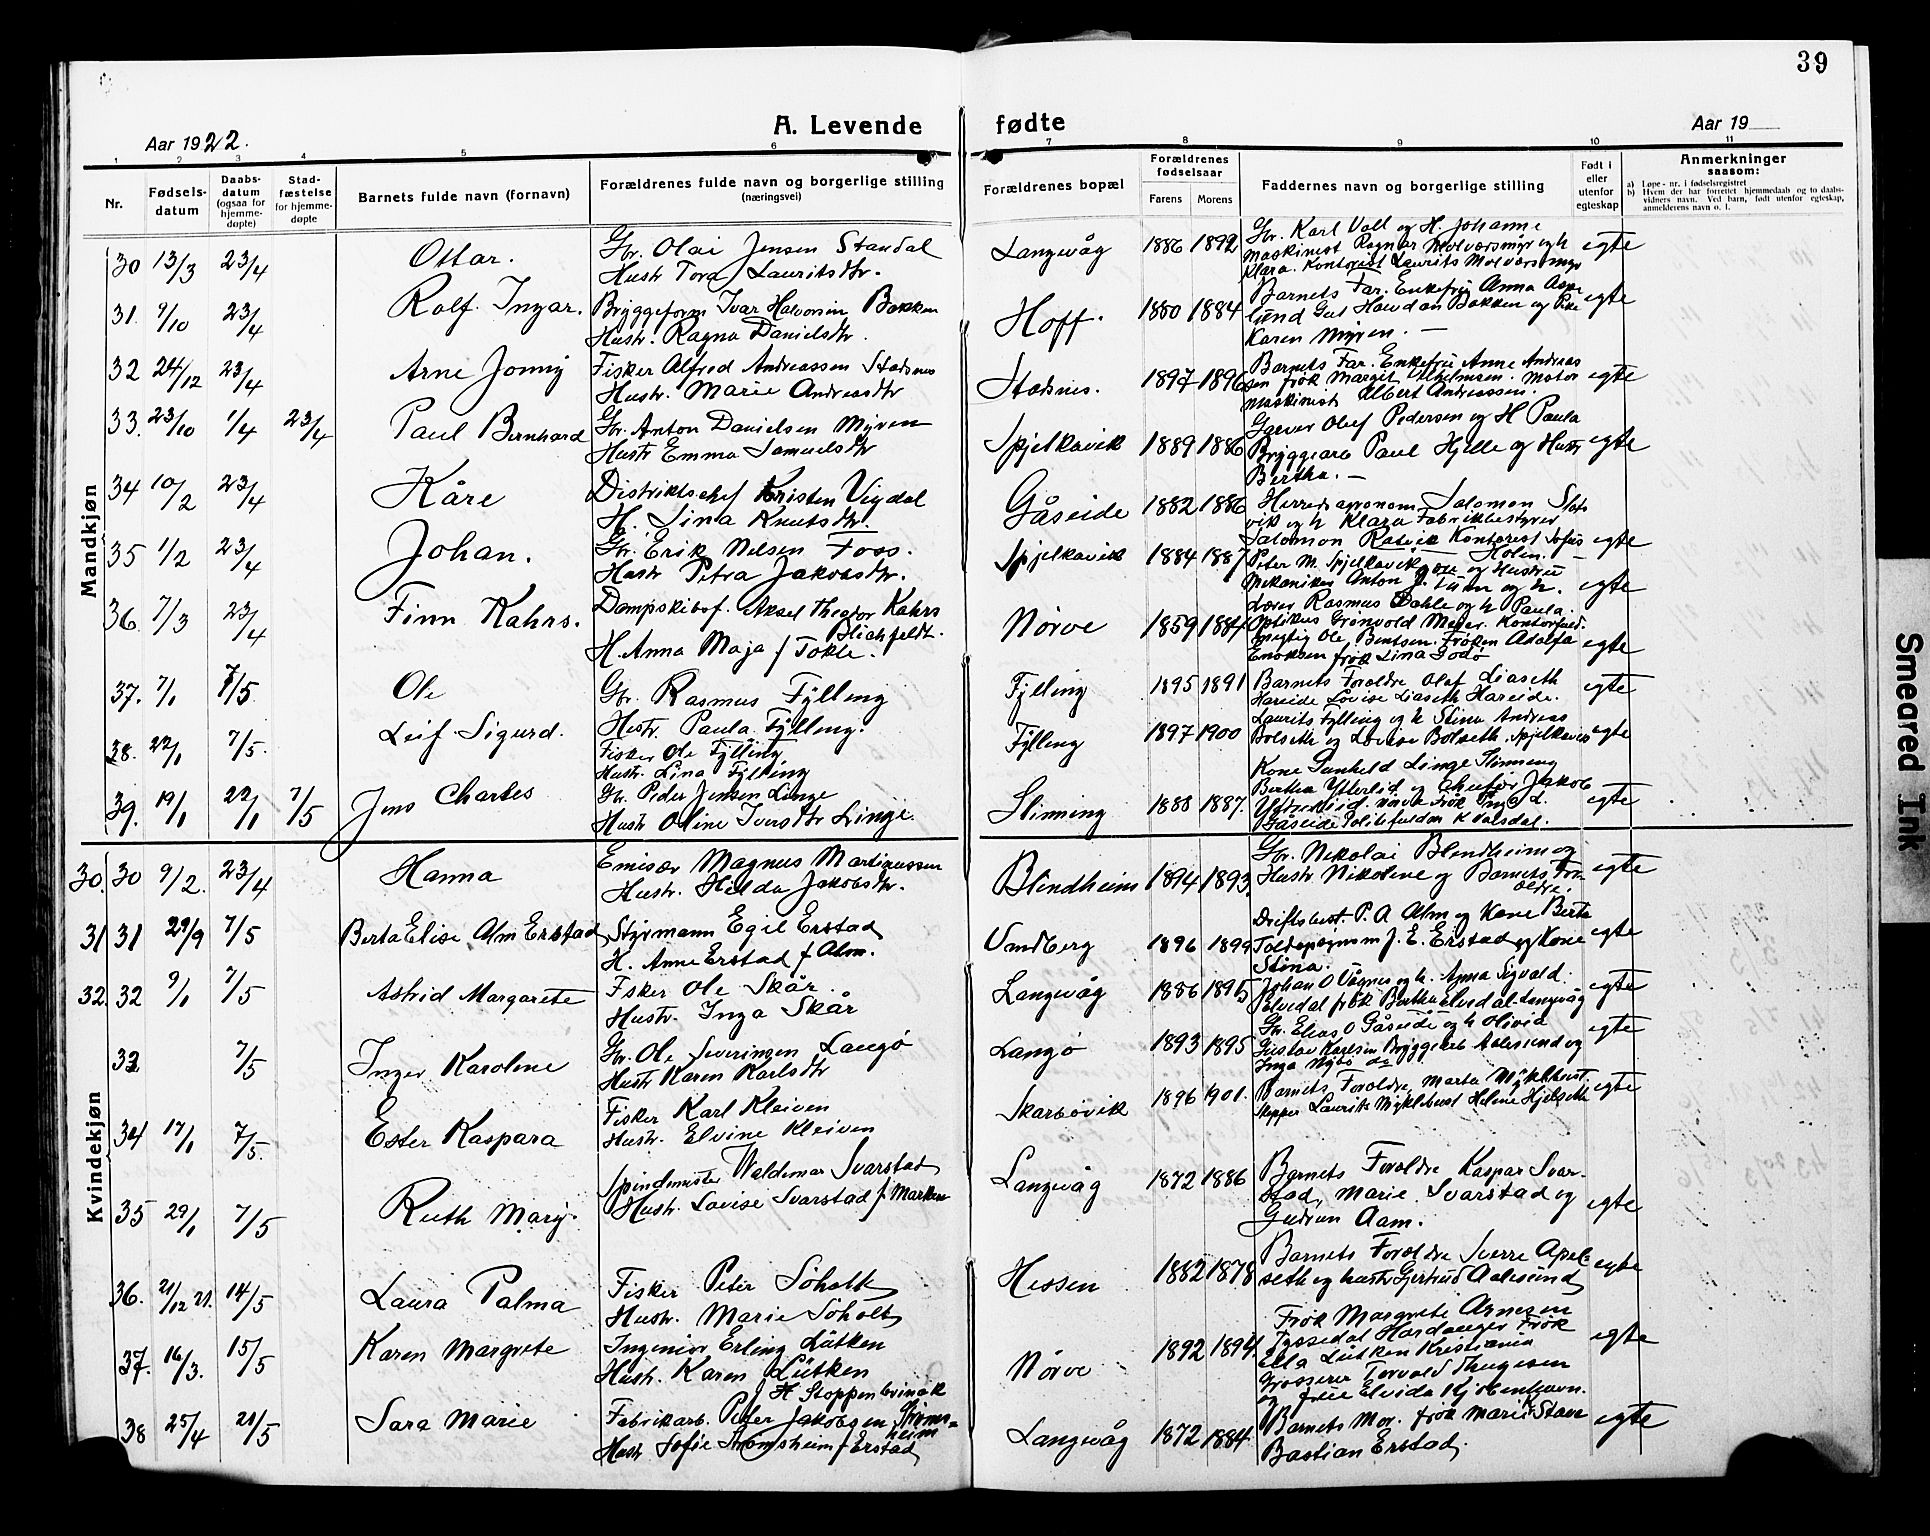 39
Aar 1922.
A. Levende fødte
Aar 19
1 2 3 4 5 6 7 8 9 10 11
Nr.
Fødsels-
datum
Daabs-
datum
(ogsaa for
hjemme-
døpte)
Stad-
fæstelse
for hjemme-
døpte
Barnets fulde navn (fornavn)
Forældrenes fulde navn og borgerlige stilling
(næringsvei)
Forældrenes bopæl
Forældrenes
fødselsaar
Farens Morens
Faddernes navn og borgerlige stilling
Født i
eller
utenfor
egteskap
Anmerkninger
saasom:
a) Løpe-nr. i fødselsregistret
b) Hvem der har forrettet hjemmedaab og to daabs-
vidners navn. Ved barn, født utenfor egteskap,
anmelderens navn o. l.
Mandkjøn
30 13/3 23/4 Ottar.
Gbr. Olai Jensen Standal
Hustr Tora Lauritsdtr.
Langevåg 1886 1892
Gbr. Karl Voll og H. Johanne
Maskinist Ragnar Molværsmyr og h
Klara. Kontorist Laurits Molværsmyr
egte
31. 9/10 23/4 Rolf Ingar.
Bryggeform Ivar Halvorsen Bakken
Hustr. Ragna Danielsdtr.
Hoff. 1880 1884
Barnets Far. Enkefru Anna Aspe
lund Gut Halvdan Bakken og Pike
Karen Myren. —
egte
32 24/12 23/4 Arne Jonny
Fisker Alfred Andreassen Stadsnes
Hustr. Marie Andreasdtr
Stadsnes. 1897 1896
Barnets Far. Enkefru Anne Andreas
sen frøk Margit Vilhelmsen. Motor
maskinist Albert Andreassen.
egte
33. 23/10 1/4 23/4 Paul Bernhard
Gbr. Anton Danielsen Myren
Hustr Emma Samuelsdtr
Spjelkavik 1889 1886
Garver Olef Pedersen og H Paula
Bryggearb Paul Hjelle og Hustr
Bertha. —
egte
34 10/2 23/4 Kåre
Distriktschef Kristen Vigdal
H. Lina Knutsdtr.
Gåseide 1882 1886
Herredsagronom Salomon
vik og h Klara Fabrikbestyrer
Salomon Ratvik Kontorist Sofus
Holen. —
egte
35 1/2 23/4 Johan.
Gbr. Erik Nilsen Foss.
Hustr Petra Jakobsdtr.
Spjelkavik 1884 1887
Peter M. Spjelkavik og Hustru
Mekaniker Anton J. Tunn og h.
Lærer Rasmus Dahle og h Paula.
egte
36 7/3 23/4 Finn Kahrs.
Dampskibsf. Aksel Theodor Kahrs
Blichfeldt.
H. Anna Maja f Tokle.
Nörve 1859 1884
Optikus Grönvold Meyer. Kontorfuld-
megtig Ole Bentsen. Frøken Adolfa
Enoksen frøk Lina Godø
egte
37. 7/1 7/5 Ole
Gbr. Rasmus Fylling
Hustr. Paula Fylling.
Fylling 1895 1891
Barnets Foreldre Olaf Liaseth
Hareide Lovise Liaseth Hareide.
egte
38. 22/1 7/5. Leif Sigurd.
Fisker Ole Fylling
Hustr. Lina Fylling
Fylling 1897 1900
Laurits Fylling og h Stina Andreas
Bolseth og Lovise Bolseth. Spjelkavik
egte
39. 19/1 22/1 7/5 Jens Charles
Gbr. Peder Jensen Linge
Hustr Oline Iversdtr Linge.
Slinning 1888 1887.
Kone Gunhild Linge Slinning
Bertha Ytterlid og chefør Jakob
Ytterlid Nörve frøk Inga L.
Gåseide Politifuldm K Valsdal.
egte
Kvindekjøn
30. 30 9/2. 23/4 Hanna
Emisær Magnus Martinussen
Hustr. Hilda Jakobsdtr.
Blindheim 1894 1893.
Gbr. Nikolai Blindheim og
Hustr Nikoline og Barnets For-
eldre.
egte
31 31 29/9 7/5 Berta Elise Alm Erstad
Styrmann Egil Erstad
H. Anne Erstad f Alm.
Vandberg 1896 1899
Driftsbest. P. A Alm og Kone Berte
Toldopsynsm J. E. Erstad og Kone
Stina.
egte
32. 32 9/1 7/5 Astrid Margarete
Fsker Ole Skår.
Hustr. Inga Skår
Langevåg 1886 1895
Johan O Vågnes og h. Anna Sigvald
Elvedal frøk Bertha Elvedal. Langevåg
egte
33 7/5 Inger Karoline
Gbr. Ole Severinsen Langö
Hustr Karen Karlsdtr
Langö 1893 1895
Gbr. Elias O Gåseide og h Olivia
Gustav Karlsen Bryggearb Aalesund og
Inga Nybö do
egte
34 17/1 7/5. Ester Kaspara
Fisker Karl Kleiven
Hustr. Elvine Kleiven
Skarbövik 1896 1901.
Barnets Foreldre, Marta Myklebust.
skipper Laurits Myklebust Helene Hjelseth
egte
35 29/1 7/5 Ruth Mary.
Spindmester Waldemar Svarstad
Hustr. Lovise Svarstad f Marken
Langevåg 1872 1886
Barnets Foreldre Kaspar Svar-
stad, Marie Svarstad og
Gudrun Aam.
egte
36. 21/12 21. 14/5 Laura Palma
Fisker Peter Söholt
Hustr. Marie Söholt
Hessen 1882 1878
Barnets Foreldre Sverre Apal-
seth og hustr Gjertrud Aalesund
egte
37. 16/3. 15/5 Karen Margrete
Ingeniør Erling Lütken
Hustr. Karen Lütken
f H Stoppenbrinck
Nörve 1892 1894.
Frøk Margrete Arnesen
Tyssedal Hardanger Frøk
Ella Lütken Kristiania
Grosserer Torvald Thygesen
og frue Elvida Kjöbenhavn.
egte
38 25/4 21/5 Sara Marie
Fabrikarb. Peter Jakobsen Strøms-
heim
Hustr Sofie Strømsheim f Erstad
Langevåg 1872 1884.
Barnets Mor. frøk Marie Stave
Bastian Erstad.
egte
Smeared Ink